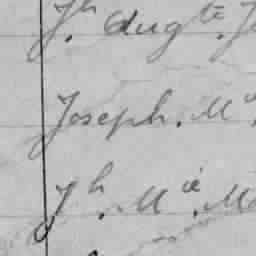 Jh. Augte. J
Joseph. M
Jh. Mie. M